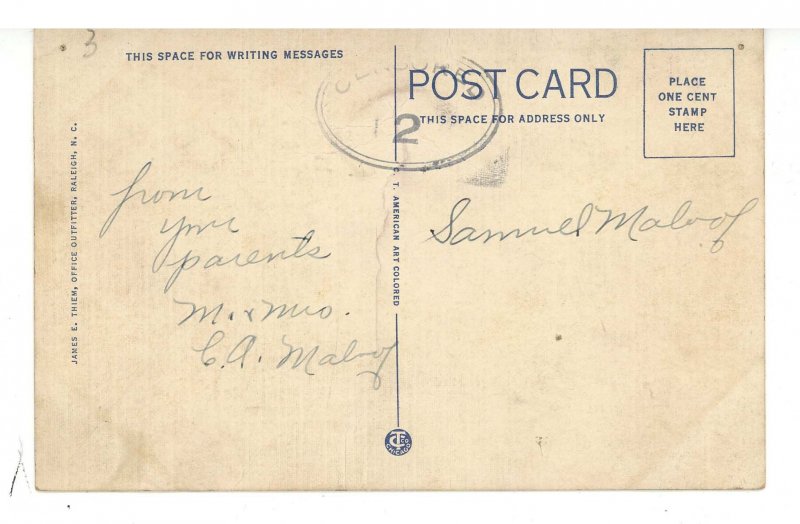 3
THIS SPACE FOR WRITING MESSAGES
from
your
parents
M. & Mrs.
C. A. Maloof
JAMES E. THIEM, OFFICE OUTFITTER, RALEIGH, N. C.
C. T. AMERICAN ART COLORED
CENSORED
2
POST CARD
THIS SPACE FOR ADDRESS ONLY
PLACE
ONE CENT
STAMP
HERE
Samuel Maloof
CHICAGO